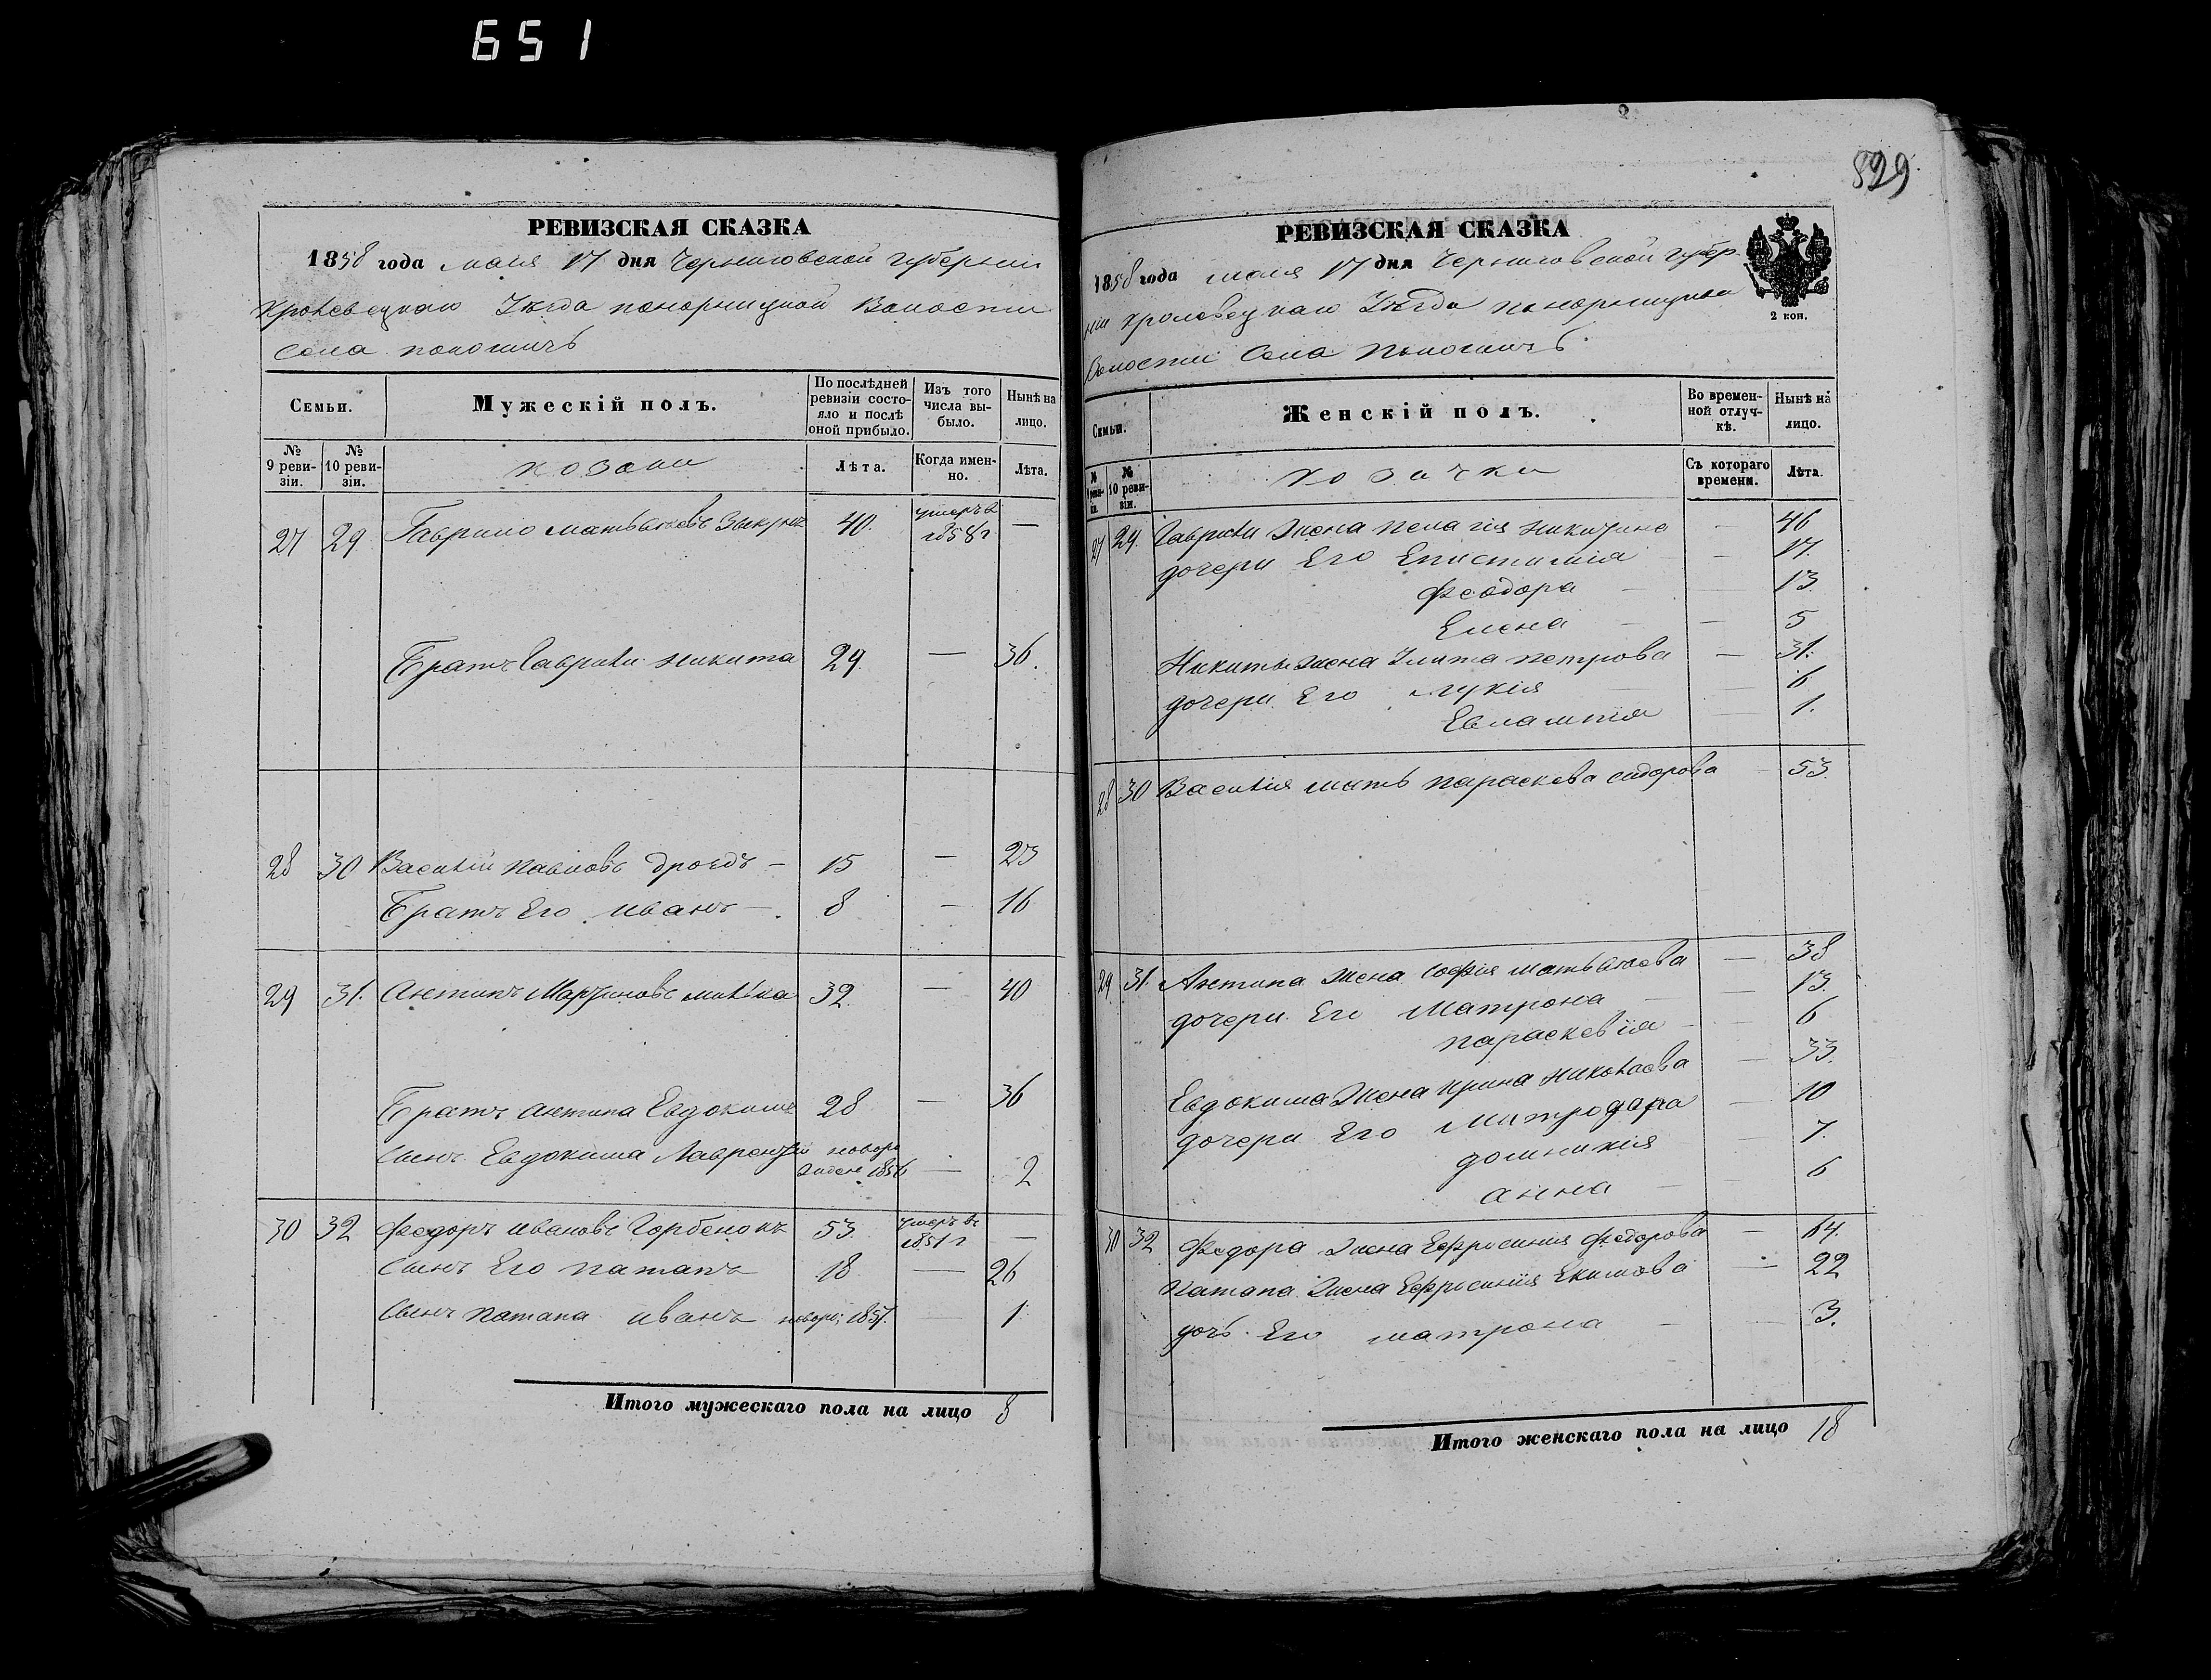 651
РЕВИЗСКАЯ СКАЗКА
1858 года маия 17 дня Черниговской губернии
Кролевецкаго Уезда понорницкой Волости
Села
Семьи.
Мужескій полъ.
По послѣдней ревизіи состояло и послѣ оной прибыло.
Изъ того числа выбыло.
Нынѣ на лицо.
№ 9 ревизіи.
№ 10 ревизіи.
козаки
Лѣта.
Когда именно.
Лѣта.
27 29 Гаврило Матвѣевъ 40. умеръ в 1858 г —
Братъ Гаврилы Никита 29. — 36.
28 30 Василий павловъ дроздъ — 15 — 23
Братъ Его Иванъ — 8 — 16
29 31. Антипъ Мартиновъ 32. — 40
Братъ антипа Евдокимъ 28 — 36
Сынъ Евдокима Лаврентий 1856 — 2
30 32 Федоръ ивановъ Горбенокъ 53. умеръ в 1851 г —
Сынъ Его патапъ 18 — 26
Сынъ патапа иванъ новорж: 1857. — 1
Итого мужескаго пола на лицо 8
529
РЕВИЗСКАЯ СКАЗКА
1858 года маия 17 дня Черниговской губер-
ніи кролевецкаго Уезда понорницкой
Волости Села
2 коп.
Семьи.
Женскій полъ.
Во временной отлучкѣ.
Нынѣ на лицо.
№ 9 ревизіи.
№ 10 ревизіи.
козачки
Съ котораго времени.
Лѣта.
27 29. Гаврилы жена пелагия никитина — 46
дочери Его Епистимия — 17.
Феодора — 13.
Елена — 5
Никиты жена Улита петрова — 31.
дочери Его лукія — 6
Евлампия — 1.
28 30 Василия мать параскева сидорова — 53.
29 31. Антипа жена София матвѣева — 38
дочери Его Матрона — 13.
параскевія — 6
Евдокима жена ирина николаева — 33.
дочери Его Митродора — 10
домникия — 7.
анна — 6
30 32 Федора жена Ефросиния федорова — 64.
патапа жена Ефросиния Екимова — 22
дочь Его матрона — 3.
Итого женскаго пола на лицо 18